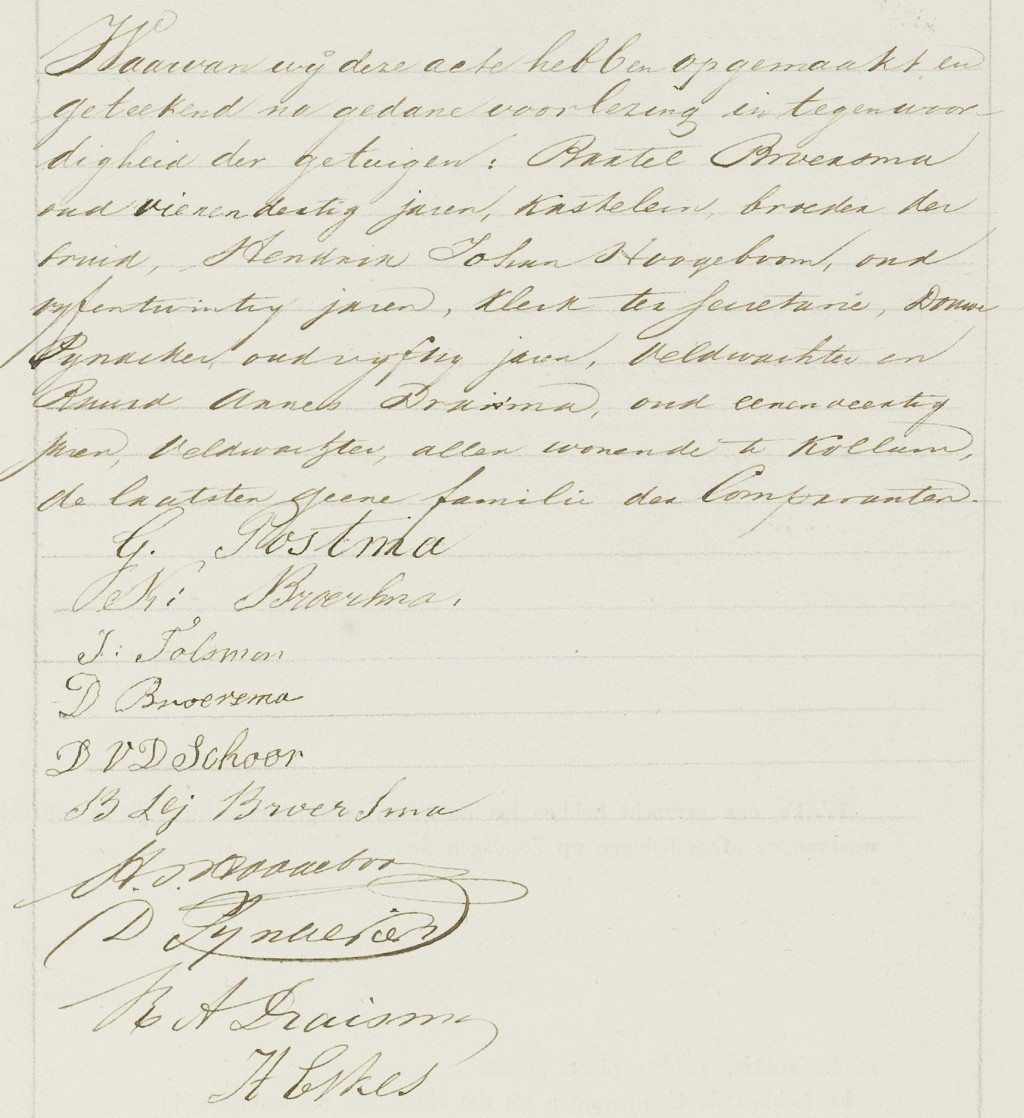 Waarvan wij deze acte hebben opgemaakt en
geteekend na gedane voorlezing in tegenwoor-
digheid der getuigen: Bartel Broersma
oud vierendertig jaren, kastelein, broeder der
bruid, Hendrik Johan Hoogeboom, oud
vyfentwintig jaren, klerk ter secretarie, Douwe
Pynacker, oud vyftig jaren, veldwachter en
Ruurd Annes Draisma, oud eenenveertig
jaren, veldwachter, allen wonende te Kollum,
de laatsten geene familie der Comparanten.
G. Postma
K: Broersma.
J: Tolsman
D Broersma
D V D Schoor
B Lej Broersma
H. J. Hoogeboo
D Pynacker
R A Draisma
H Eskes